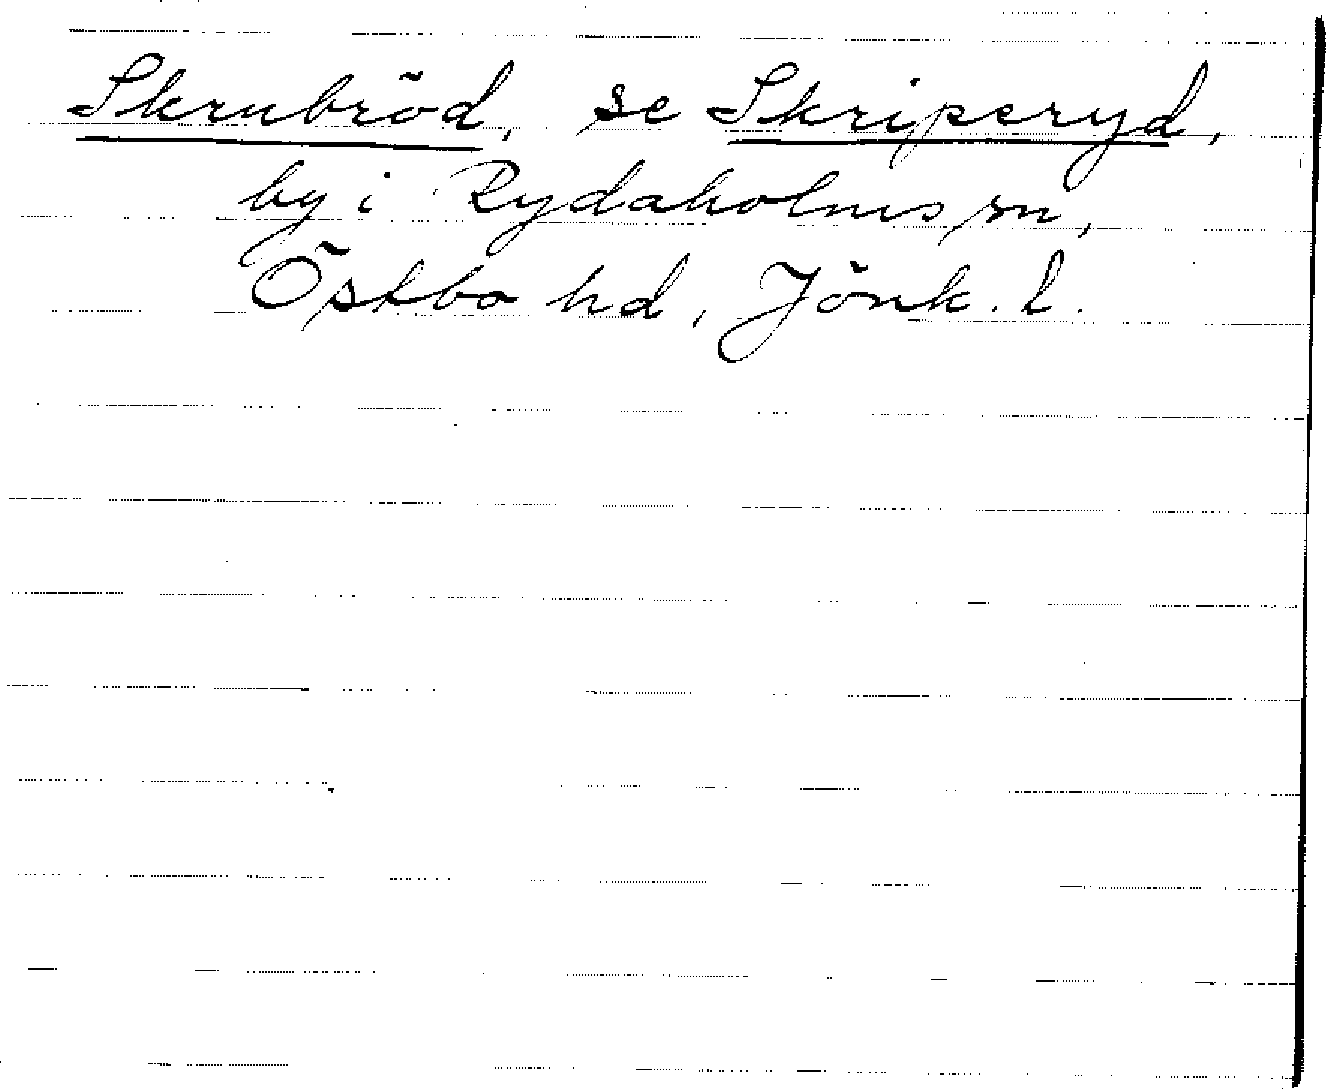 Skrubröd, se Skriperyd,
by i Rydaholms sn,
Östbo hd, Jönk. l.